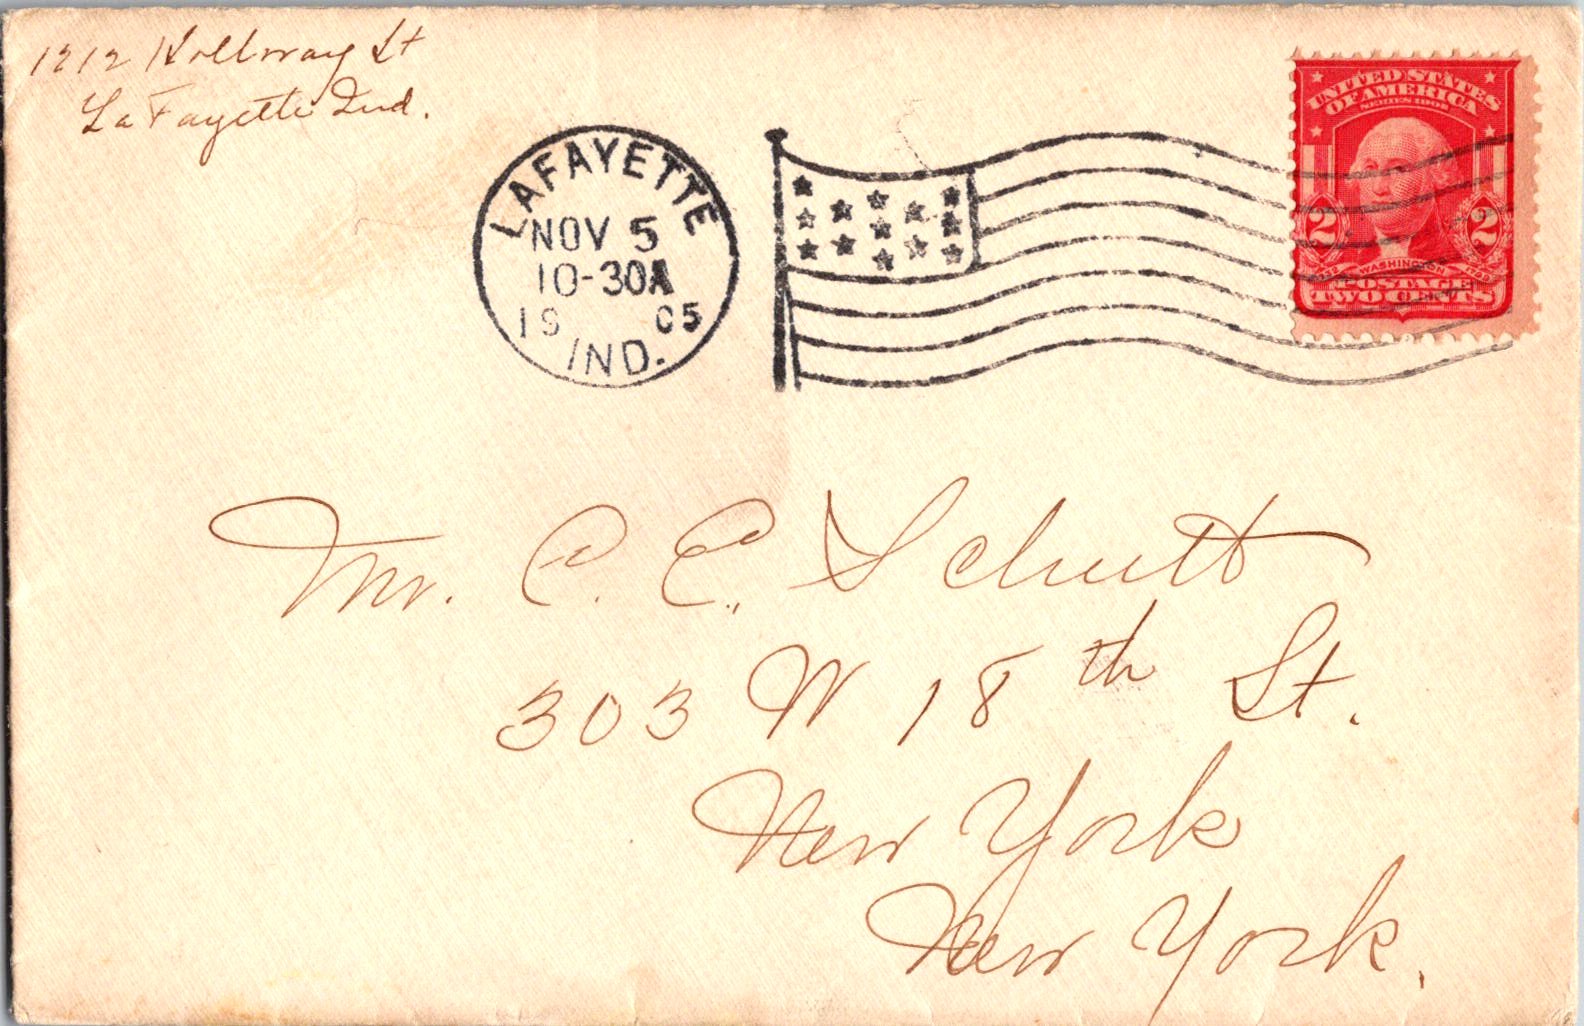 1212 Hollway St
La Fayette Ind.
LAFAYETTE
NOV 5
10-30A
19 05
IND.
UNITED STATES
OF AMERICA
SERIES 1902
2 2
WASHINGTON
POSTAGE
TWO CENTS
Mr. C. C. Schutt
303 W 18th St.
New York
New York.